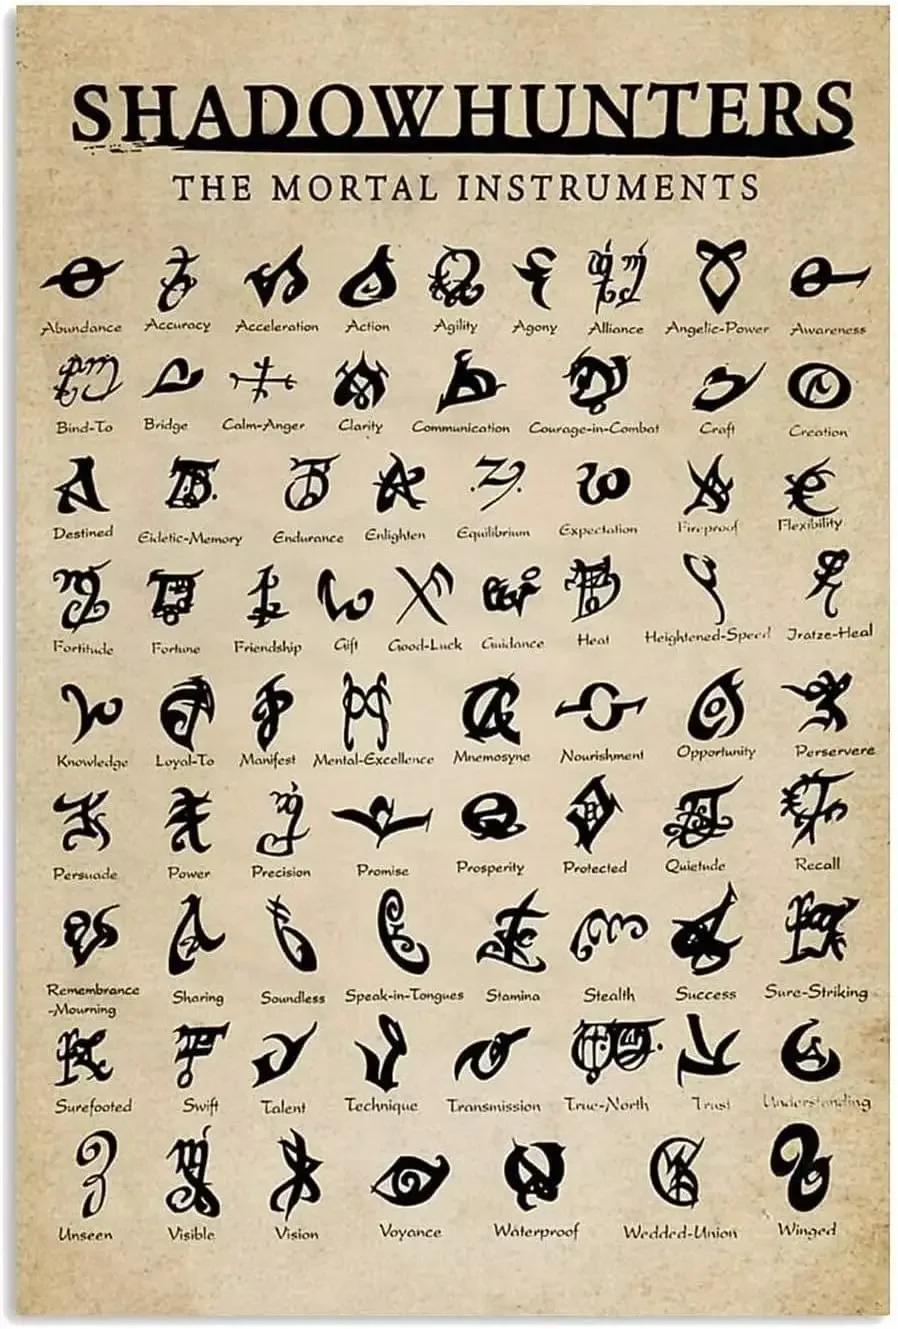 SHADOWHUNTERS
THE MORTAL INSTRUMENTS
Abundance Accuracy Acceleration Action Agility Agony Alliance Angelic-Power Awareness
Bind-To Bridge Calm-Anger Clarity Communication Courage-in-Combat Craft Creation
Destined Eidetic-Memory Endurance Enlighten Equilibrium Expectation Fireproof Flexibility
Fortitude Fortune Friendship Gift Good-Luck Guidance Heat Heightened-Speed Iratze-Heal
Knowledge Loyal-To Manifest Mental-Excellence Mnemosyne Nourishment Opportunity Perservere
Persuade Power Precision Promise Prosperity Protected Quietude Recall
Remembrance
-Mourning Sharing Soundless Speak-in-Tongues Stamina Stealth Success Sure-Striking
Surefooted Swift Talent Technique Transmission True-North Trust Understanding
Unseen Visible Vision Voyance Waterproof Wedded-Union Winged